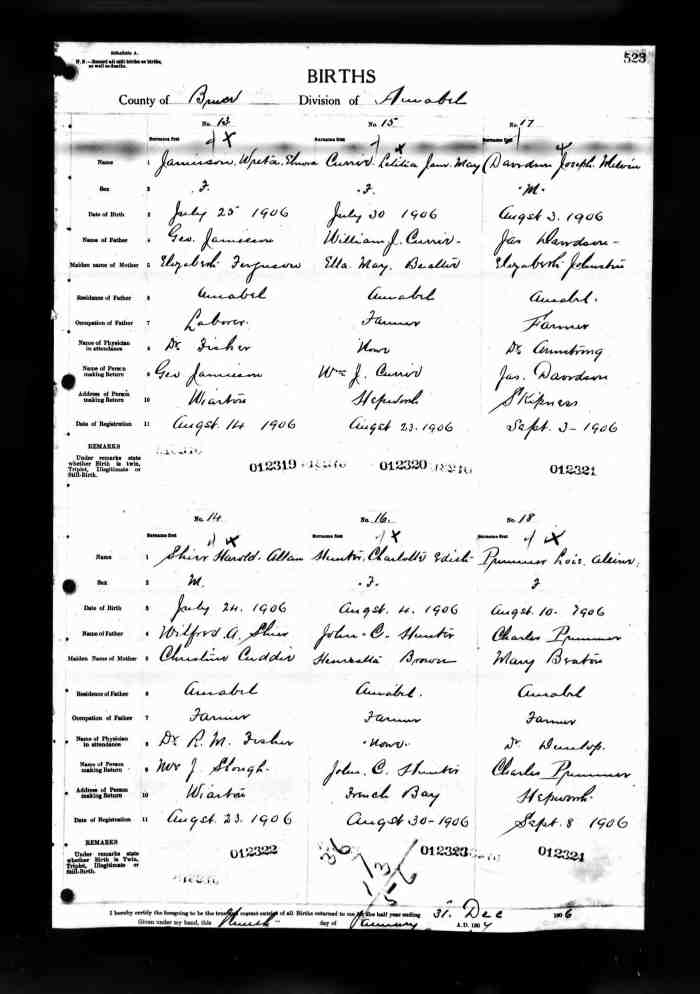 Schedule A.
N.B.—Record all still births as births, as well as deaths.
523
BIRTHS
County of Bruce Division of Amabel
No. 13 No. 15 No. 17
Surname first Surname first Surname first
Name 1 Jamieson, Elnora Currie, Letitia Jane May Davidson Joseph Melvin
Sex 2 F. F. M.
Date of Birth 3 July 25 1906 July 30 1906 Augst 3. 1906
Name of Father 4 Geo. Jamieson William J. Currie Jas Davidson
Maiden name of Mother 5 Elizabeth Ferguson Ella May Elizabeth Johnston
Residence of Father 6 Amabel Amabel Amabel.
Occupation of Father 7 Laborer. Farmer Farmer
Name of Physician in attendance 8 Dr Fisher None Dr Armstrong
Name of Person making Return 9 Geo Jamieson Wm J. Currie Jas. Davidson
Address of Person making Return 10 Wiarton Hepworth Skipness
Date of Registration 11 Augst. 14 1906 Augst 23. 1906 Sept. 3 - 1906
REMARKS
Under remarks state whether Birth is twin, Triplet, Illegitimate or Still-Birth.
012319 012320 012321
No. 14 No. 16. No. 18
Surname first Surname first Surname first
Name 1 Shier Harold Allan Hunter, Charlotte Edith Lois
Sex 2 M. F. F
Date of Birth 3 July 24. 1906 Augst. 4. 1906 Augst. 10- 1906
Name of Father 4 Wilfred A. Shier John C. Hunter Charles
Maiden Name of Mother 5 Christine Cuddie Henrietta Brown Mary Beaton
Residence of Father 6 Amabel Amabel. Amabel
Occupation of Father 7 Farmer Farmer Farmer
Name of Physician in attendance 8 Dr. R. M. Fisher None Dr Dunlop.
Name of Person making Return 9 Mrs J. Slough. John. C. Hunter Charles
Address of Person making Return 10 Wiarton French Bay Hepworth.
Date of Registration 11 Augst. 23. 1906 Augst 30-1906 Sept. 8 1906
REMARKS
Under remarks state whether Birth is Twin, Triplet, Illegitimate or Still-Birth.
012322 012323 012324
I hereby certify the foregoing to be the true and correct entries of all Births returned to me for the half year ending 31. Dec 1906
Given under my hand, this day of January A.D. 1907